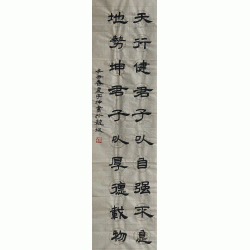 天行健君子以自强不息
地勢坤君子以厚德載物